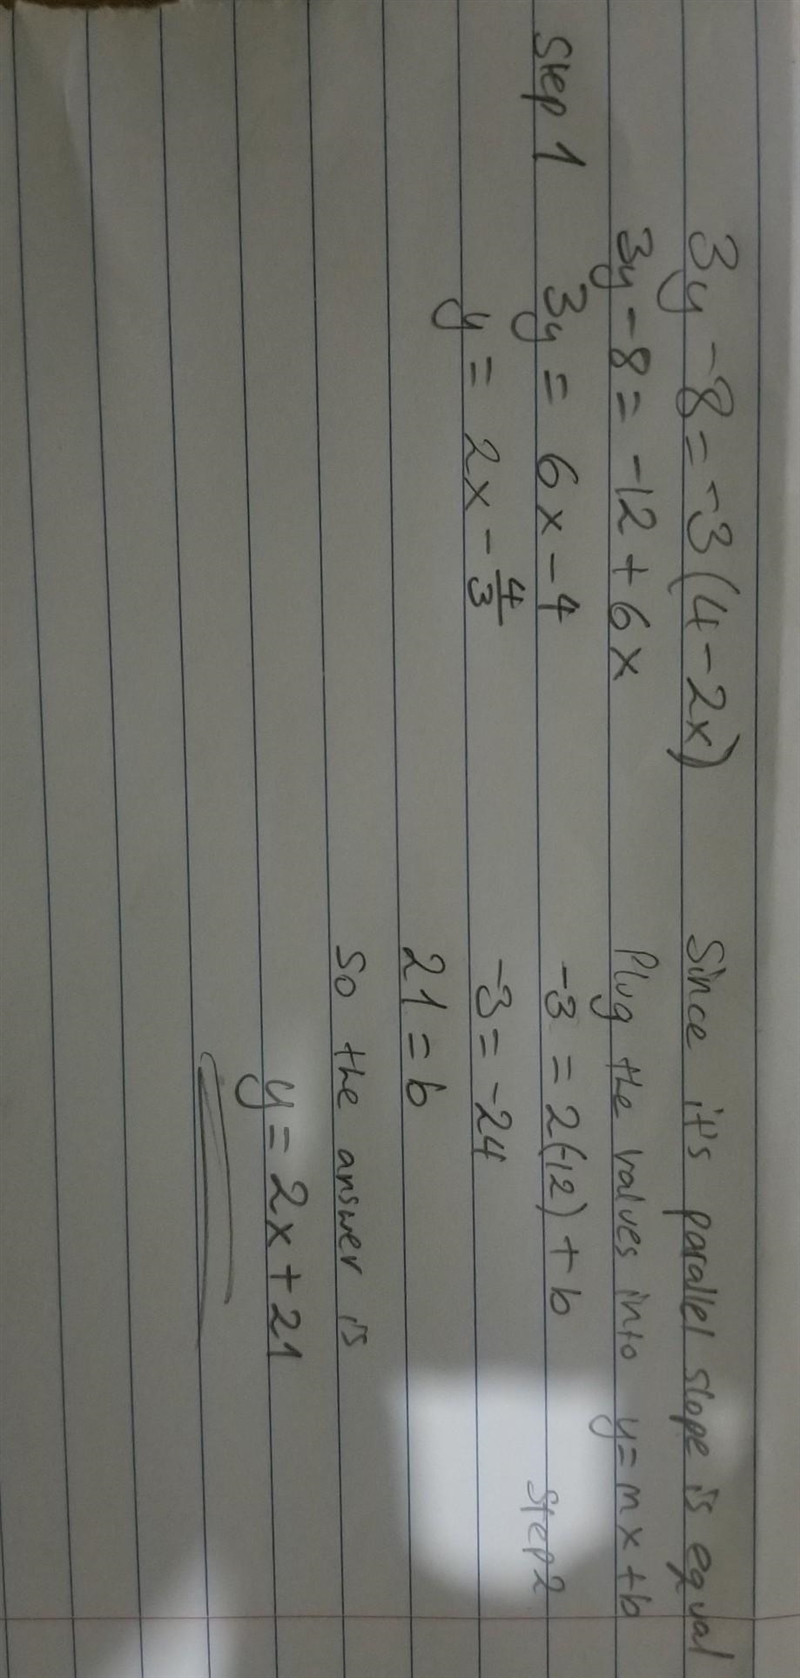 3y - 8 = -3(4 - 2x)
3y - 8 = -12 + 6x
Step 1 3y = 6x - 4
y = 2x - 4/3
Since it's parallel slope is equal
Plug the values into y = mx + b
-3 = 2(-12) + b Step 2
-3 = -24
21 = b
So the answer is
y = 2x + 21